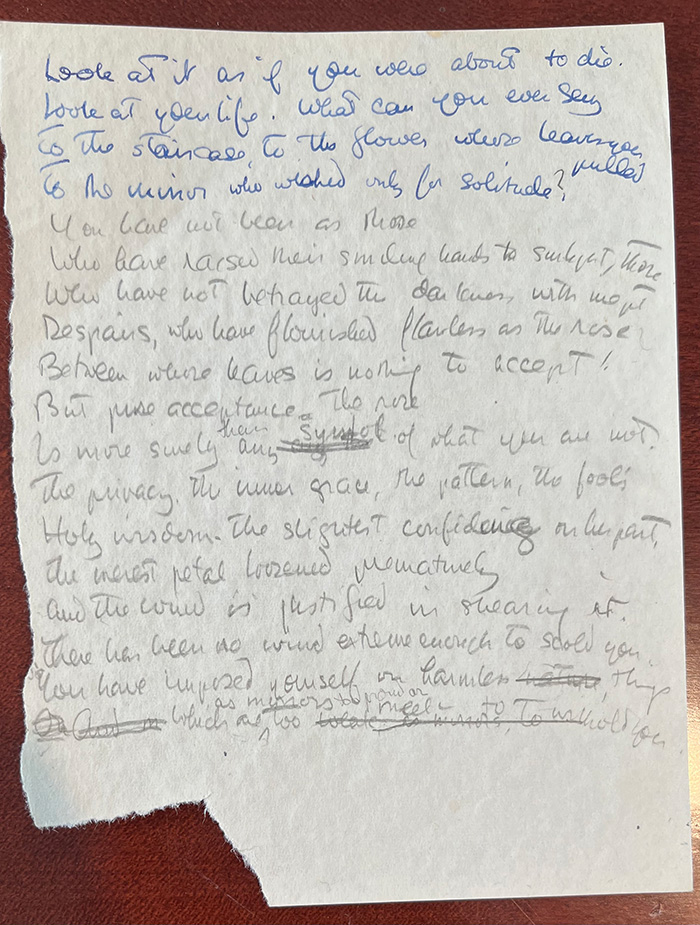 Look at it as if you were about to die.
Look at your life. What can you ever say
To the staircase, to the flower whose leaves you pulled
To the mirror who wished only for solitude?
You have not been as those
Who have raised their smiling hands to sunlight, those
Who have not betrayed the darkness with inept
Despairs, who have flourished flawless as the rose
Between whose leaves is nothing to accept!
But pure acceptance. The rose
Is more surely than any symbol of what you are not.
The privacy, the inner grace, the pattern, the fool's
Holy wisdom. The slightest confidence on her part,
The merest petal loosened prematurely
And the wind is justified in shearing it.
There has been no wind extreme enough to scold you.
You have imposed yourself on harmless nature, things
as mirrors proud or
which are too meek to to withhold you